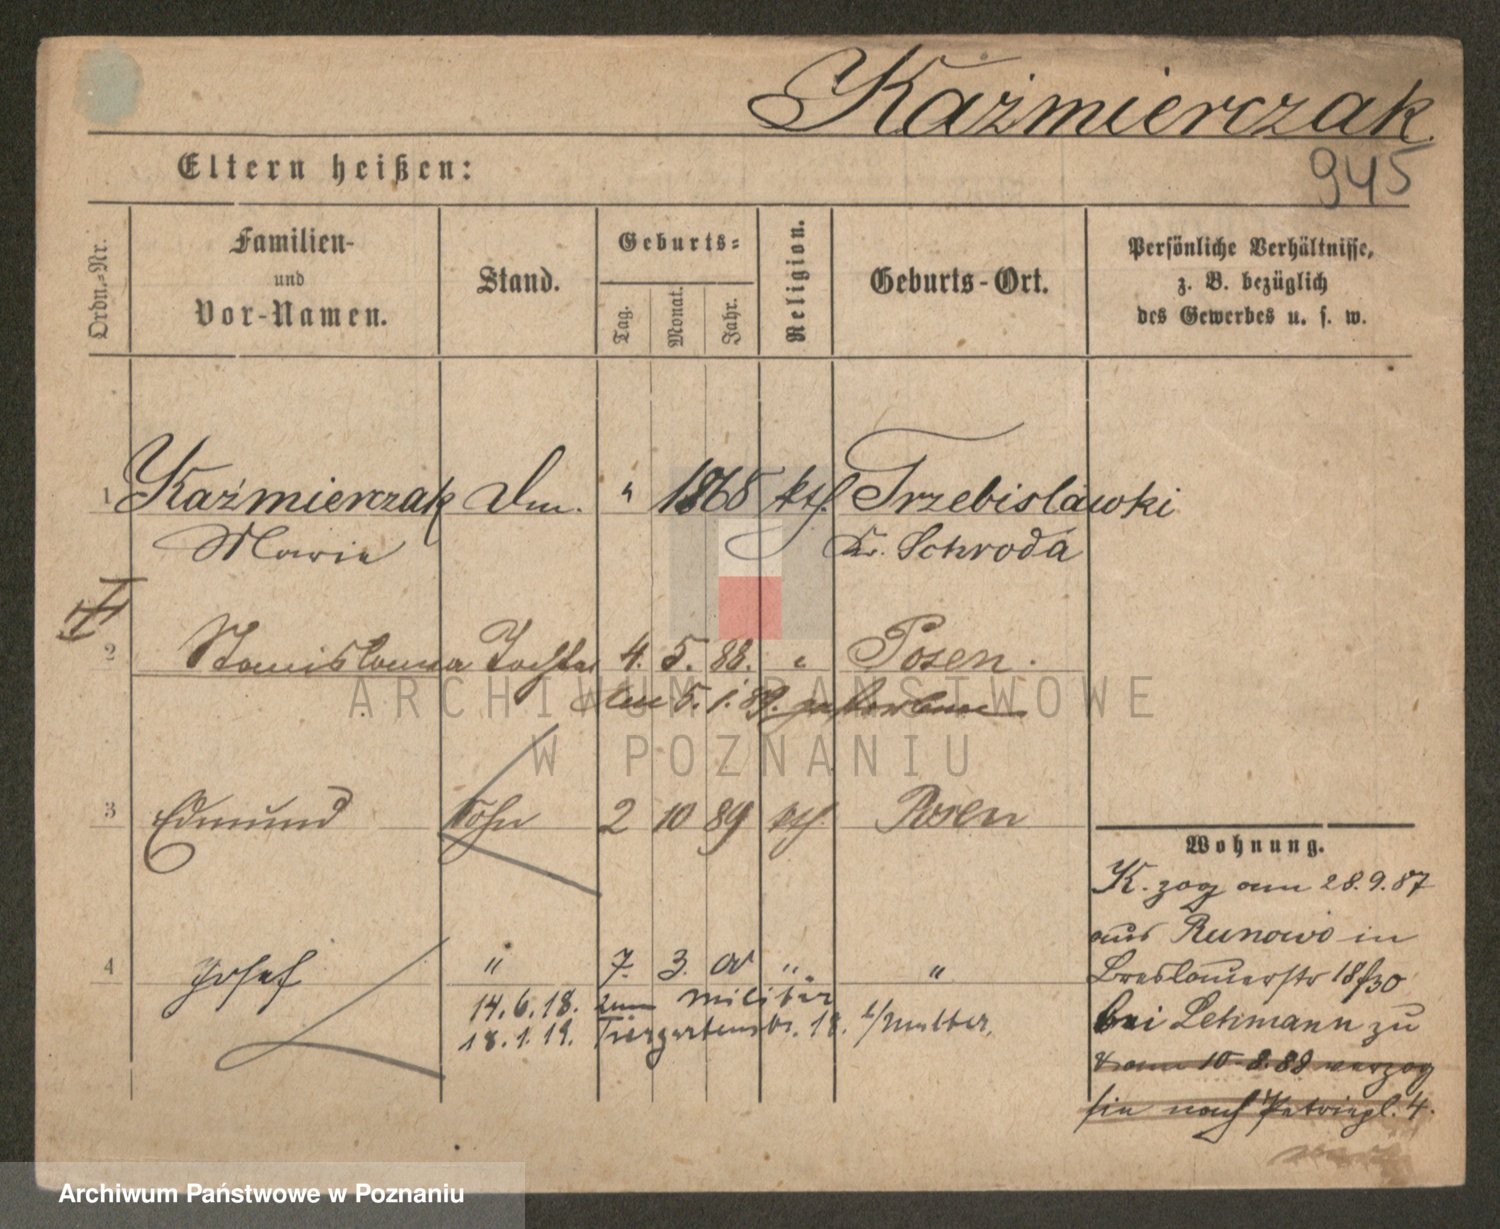 Kaźmierczak
945
Eltern heißen:
Ordn.-Nr.
Familien-
und
Vor-Namen.
Stand.
Geburts-
Tag.
Monat.
Jahr.
Religion.
Geburts-Ort.
Persönliche Verhältnisse,
z. B. bezüglich
des Gewerbes u. s. w.
1 Kaźmierczak " 1865 kth. Trzebisławki
Marie Kr. Schroda
2 Stanislawa Tochter 4. 5. 88. " Posen.
den 5. 1. 89. gestorben
3 Edmund Sohn 2 10 89 kth. Posen
4 Josef " 7. 3. " "
14. 6. 18. zum Militär
18. 1. 19. Tiergartenstr. 18. b/Mutter.
Wohnung.
K. zog am 28.9.87
aus Runowo in
Breslauerstr 18/30
bei Lehmann zu
am 10.8.88 verzog
sie nach Petripl. 4.
ARCHIWUM PAŃSTWOWE
W POZNANIU
Archiwum Państwowe w Poznaniu